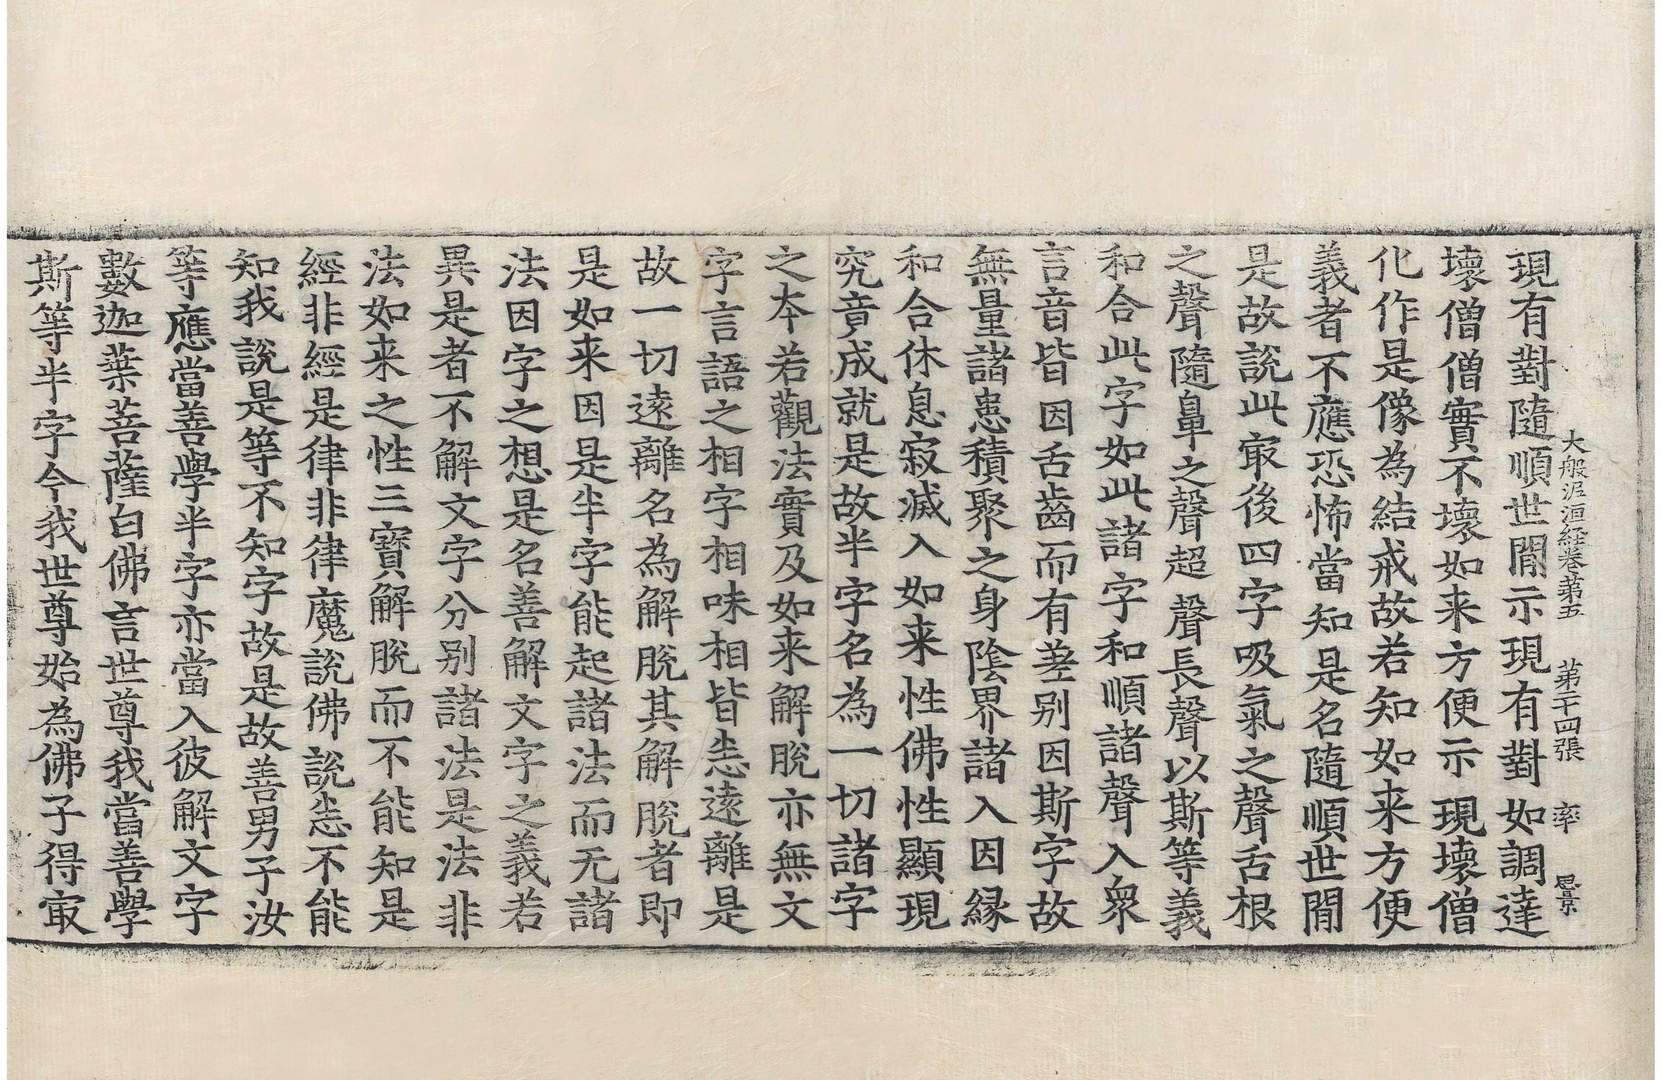 大般泥洹経卷苐五　苐二十四張　率　思景
現有對隨順世閒示現有對如調達
壞僧僧實不壞如来方便示現壞僧
化作是像為結戒故若知如来方便
義者不應恐怖當知是名隨順世閒
是故說此㝡後四字吸氣之聲舌根
之聲隨鼻之聲超聲長聲以斯等義
和合此字如此諸字和順諸聲入衆
言音皆因舌齒而有差别因斯字故
無量諸患積聚之身陰界諸入因縁
和合休息寂滅入如来性佛性顯現
究竟成就是故半字名為一切諸字
之夲若觀法實及如来解脫亦無文
字言語之相字相味相皆悉遠離是
故一切遠離名為解脫其解脫者即
是如来因是半字能起諸法而无諸
法因字之想是名善解文字之義若
異是者不解文字分别諸法是法非
法如来之性三寶解脫而不能知是
經非經是律非律魔說佛說悉不能
知我說是等不知字故是故善男子汝
等應當善學半字亦當入彼解文字
數迦葉菩薩白佛言世尊我當善學
斯等半字今我世尊始為佛子得㝡